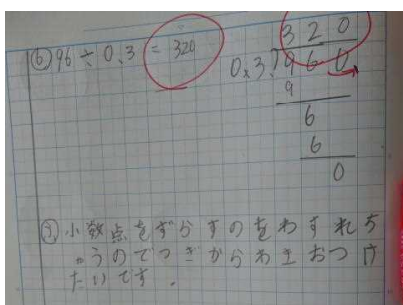 ⑥ 96÷0.3=320
320
0.3.)960
9
6
6
0
③ 小数点をずらすのをわすれち
ゃうのでつぎからわきおつけ
たいです。